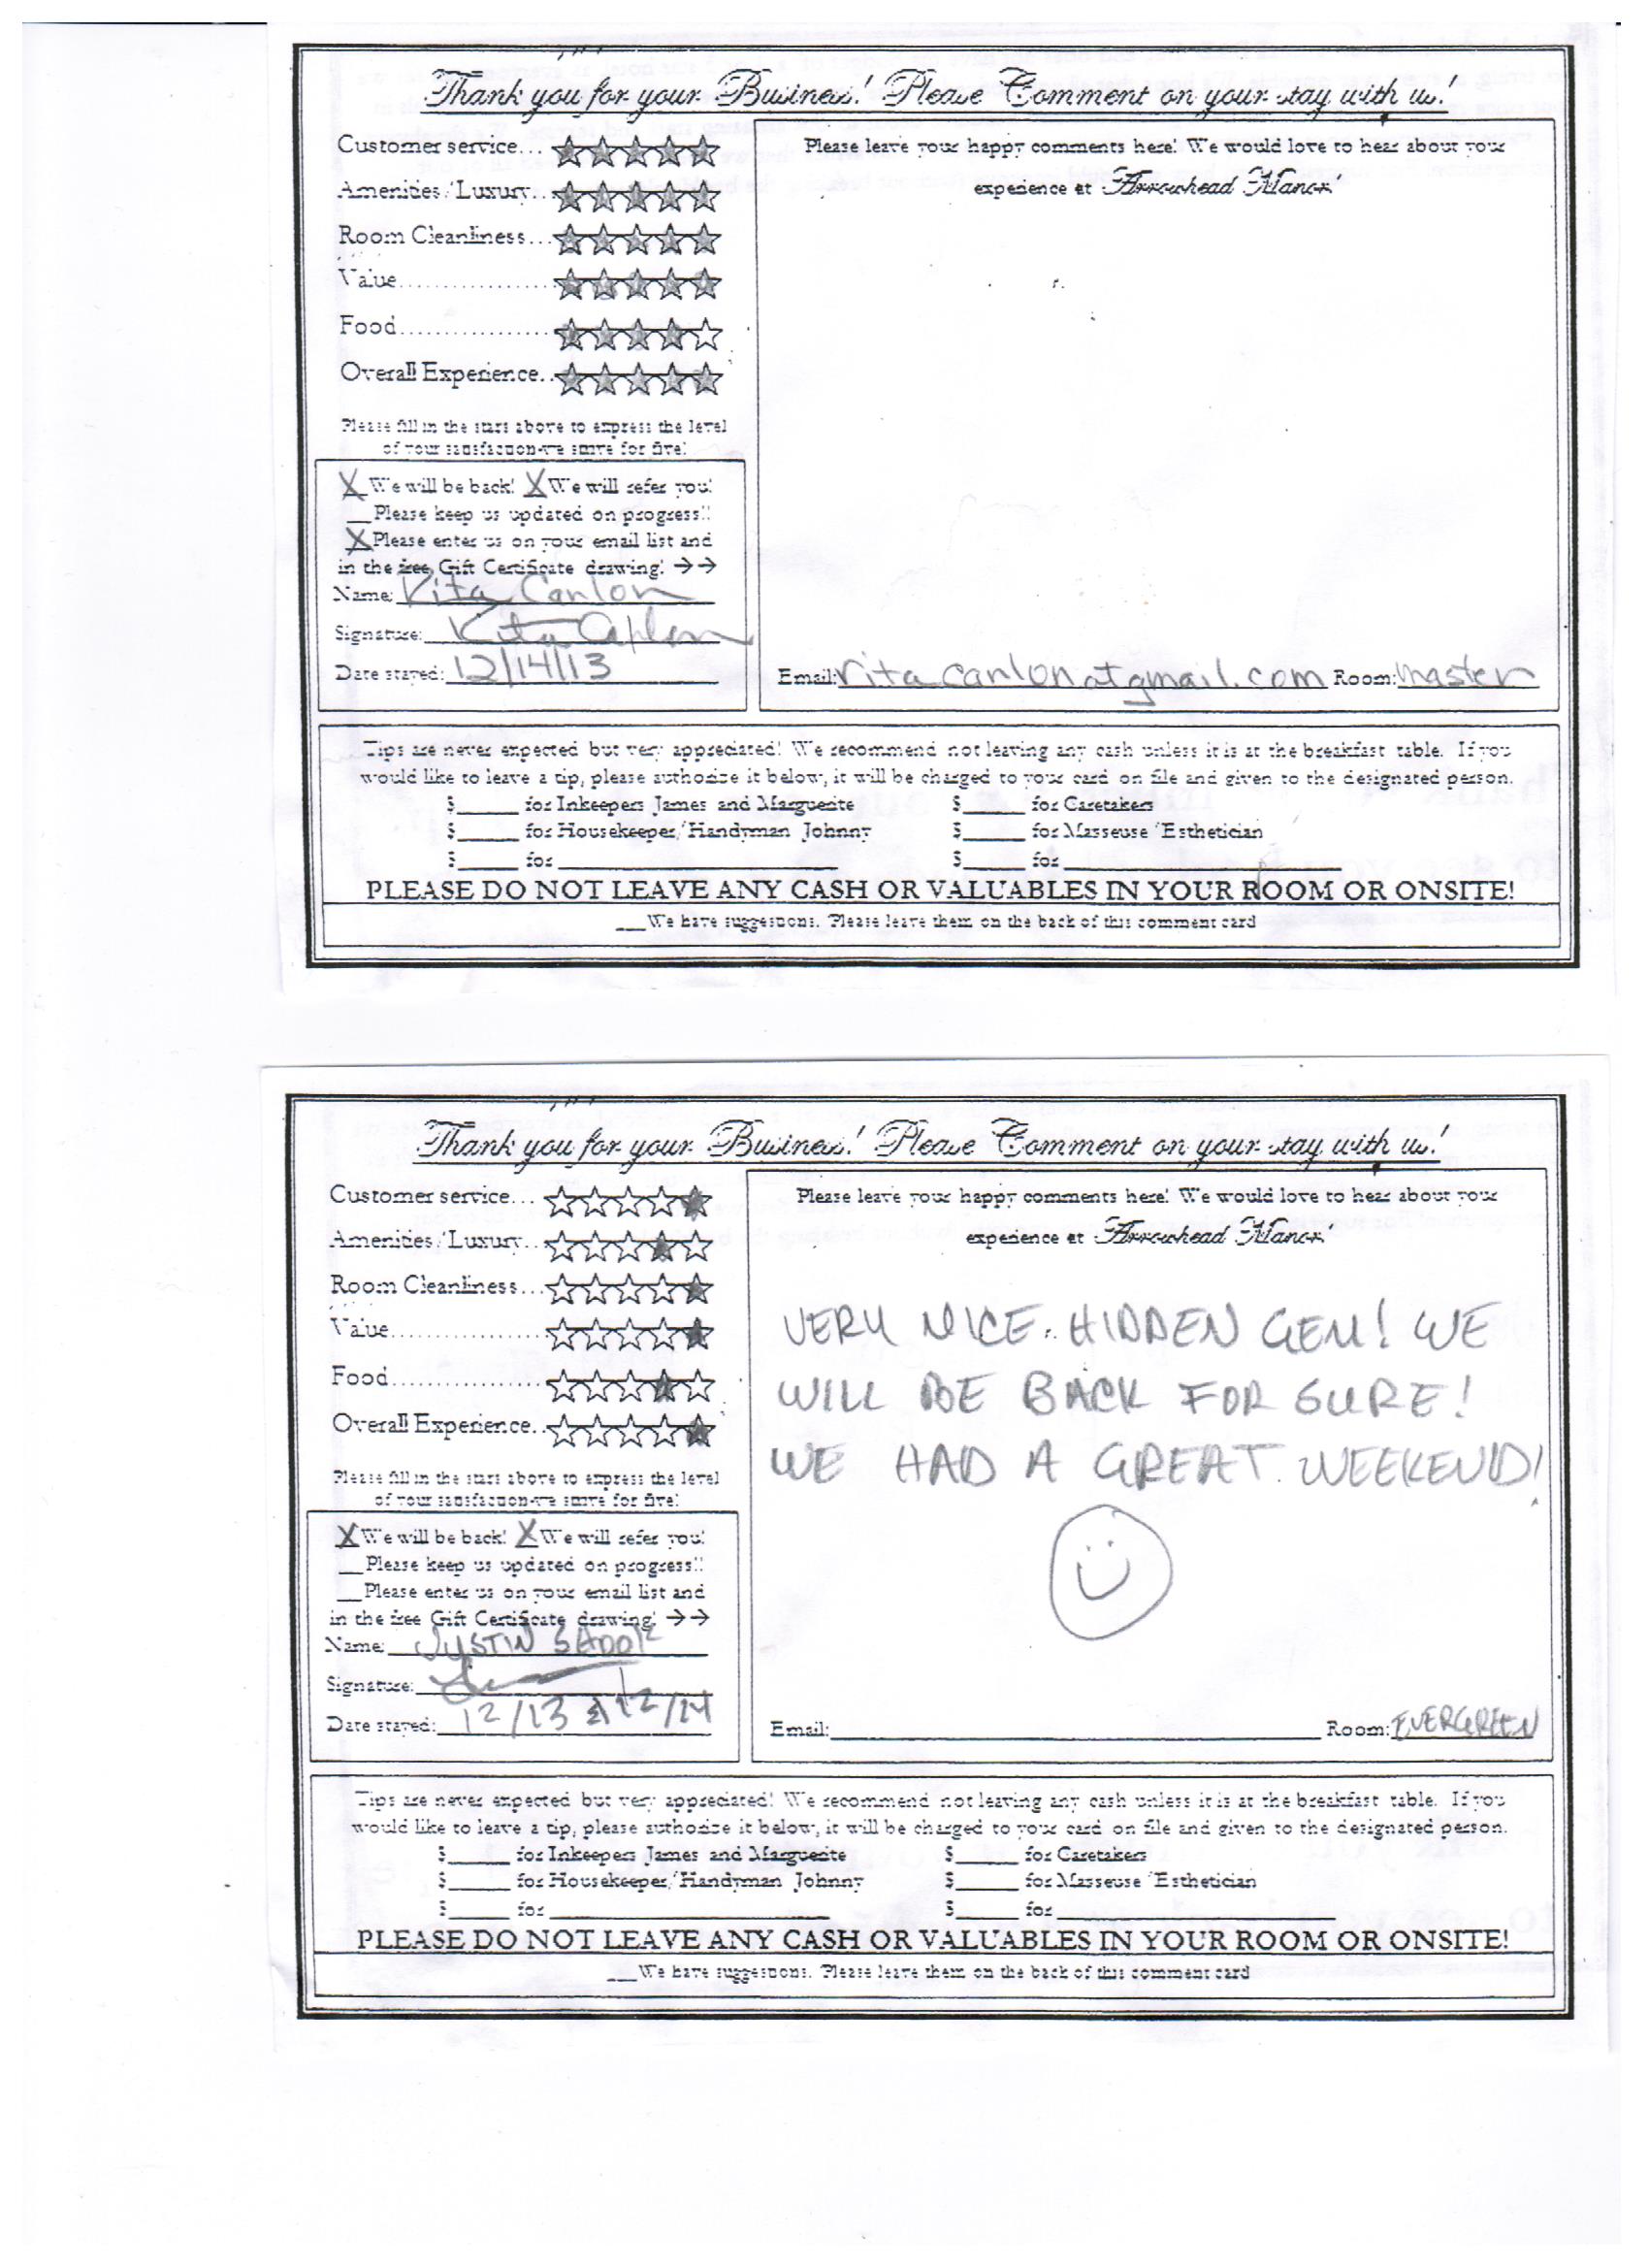 Thank you for your Business! Please Comment on your stay with us!
Customer service...
Amenities/Luxury...
Room Cleanliness...
Value..................
Food..................
Overall Experience...
Please fill in the stars above to express the level
of your satisfaction-we strive for five!
X We will be back! X We will refer you!
__Please keep us updated on progress!!
X Please enter us on your email list and
in the free Gift Certificate drawing! →→
Name: Rita Canlon
Signature: Rita Canlon
Date stayed: 12/14/13
Please leave your happy comments here! We would love to hear about your
experience at Arrowhead Manor!
Email: rita canlon at gmail.com Room: master
Tips are never expected but very appreciated! We recommend not leaving any cash unless it is at the breakfast table. If you
would like to leave a tip, please authorize it below, it will be charged to your card on file and given to the designated person.
$_____ for Inkeepers James and Marguerite $_____ for Caretakers
$_____ for Housekeeper/Handyman Johnny $_____ for Masseuse/Esthetician
$_____ for ____________ $_____ for ____________
PLEASE DO NOT LEAVE ANY CASH OR VALUABLES IN YOUR ROOM OR ONSITE!
___We have suggestions. Please leave them on the back of this comment card
Thank you for your Business! Please Comment on your stay with us!
Customer service...
Amenities/Luxury...
Room Cleanliness...
Value..................
Food..................
Overall Experience...
Please fill in the stars above to express the level
of your satisfaction-we strive for five!
X We will be back! X We will refer you!
__Please keep us updated on progress!!
__Please enter us on your email list and
in the free Gift Certificate drawing! →→
Name: JUSTIN
Signature:
Date stayed: 12/13 & 12/14
Please leave your happy comments here! We would love to hear about your
experience at Arrowhead Manor!
VERY NICE. HIDDEN GEM! WE
WILL BE BACK FOR SURE!
WE HAD A GREAT WEEKEND!
Email:____________ Room: EVERGREEN
Tips are never expected but very appreciated! We recommend not leaving any cash unless it is at the breakfast table. If you
would like to leave a tip, please authorize it below, it will be charged to your card on file and given to the designated person.
$_____ for Inkeepers James and Marguerite $_____ for Caretakers
$_____ for Housekeeper/Handyman Johnny $_____ for Masseuse/Esthetician
$_____ for ____________ $_____ for ____________
PLEASE DO NOT LEAVE ANY CASH OR VALUABLES IN YOUR ROOM OR ONSITE!
___We have suggestions. Please leave them on the back of this comment card